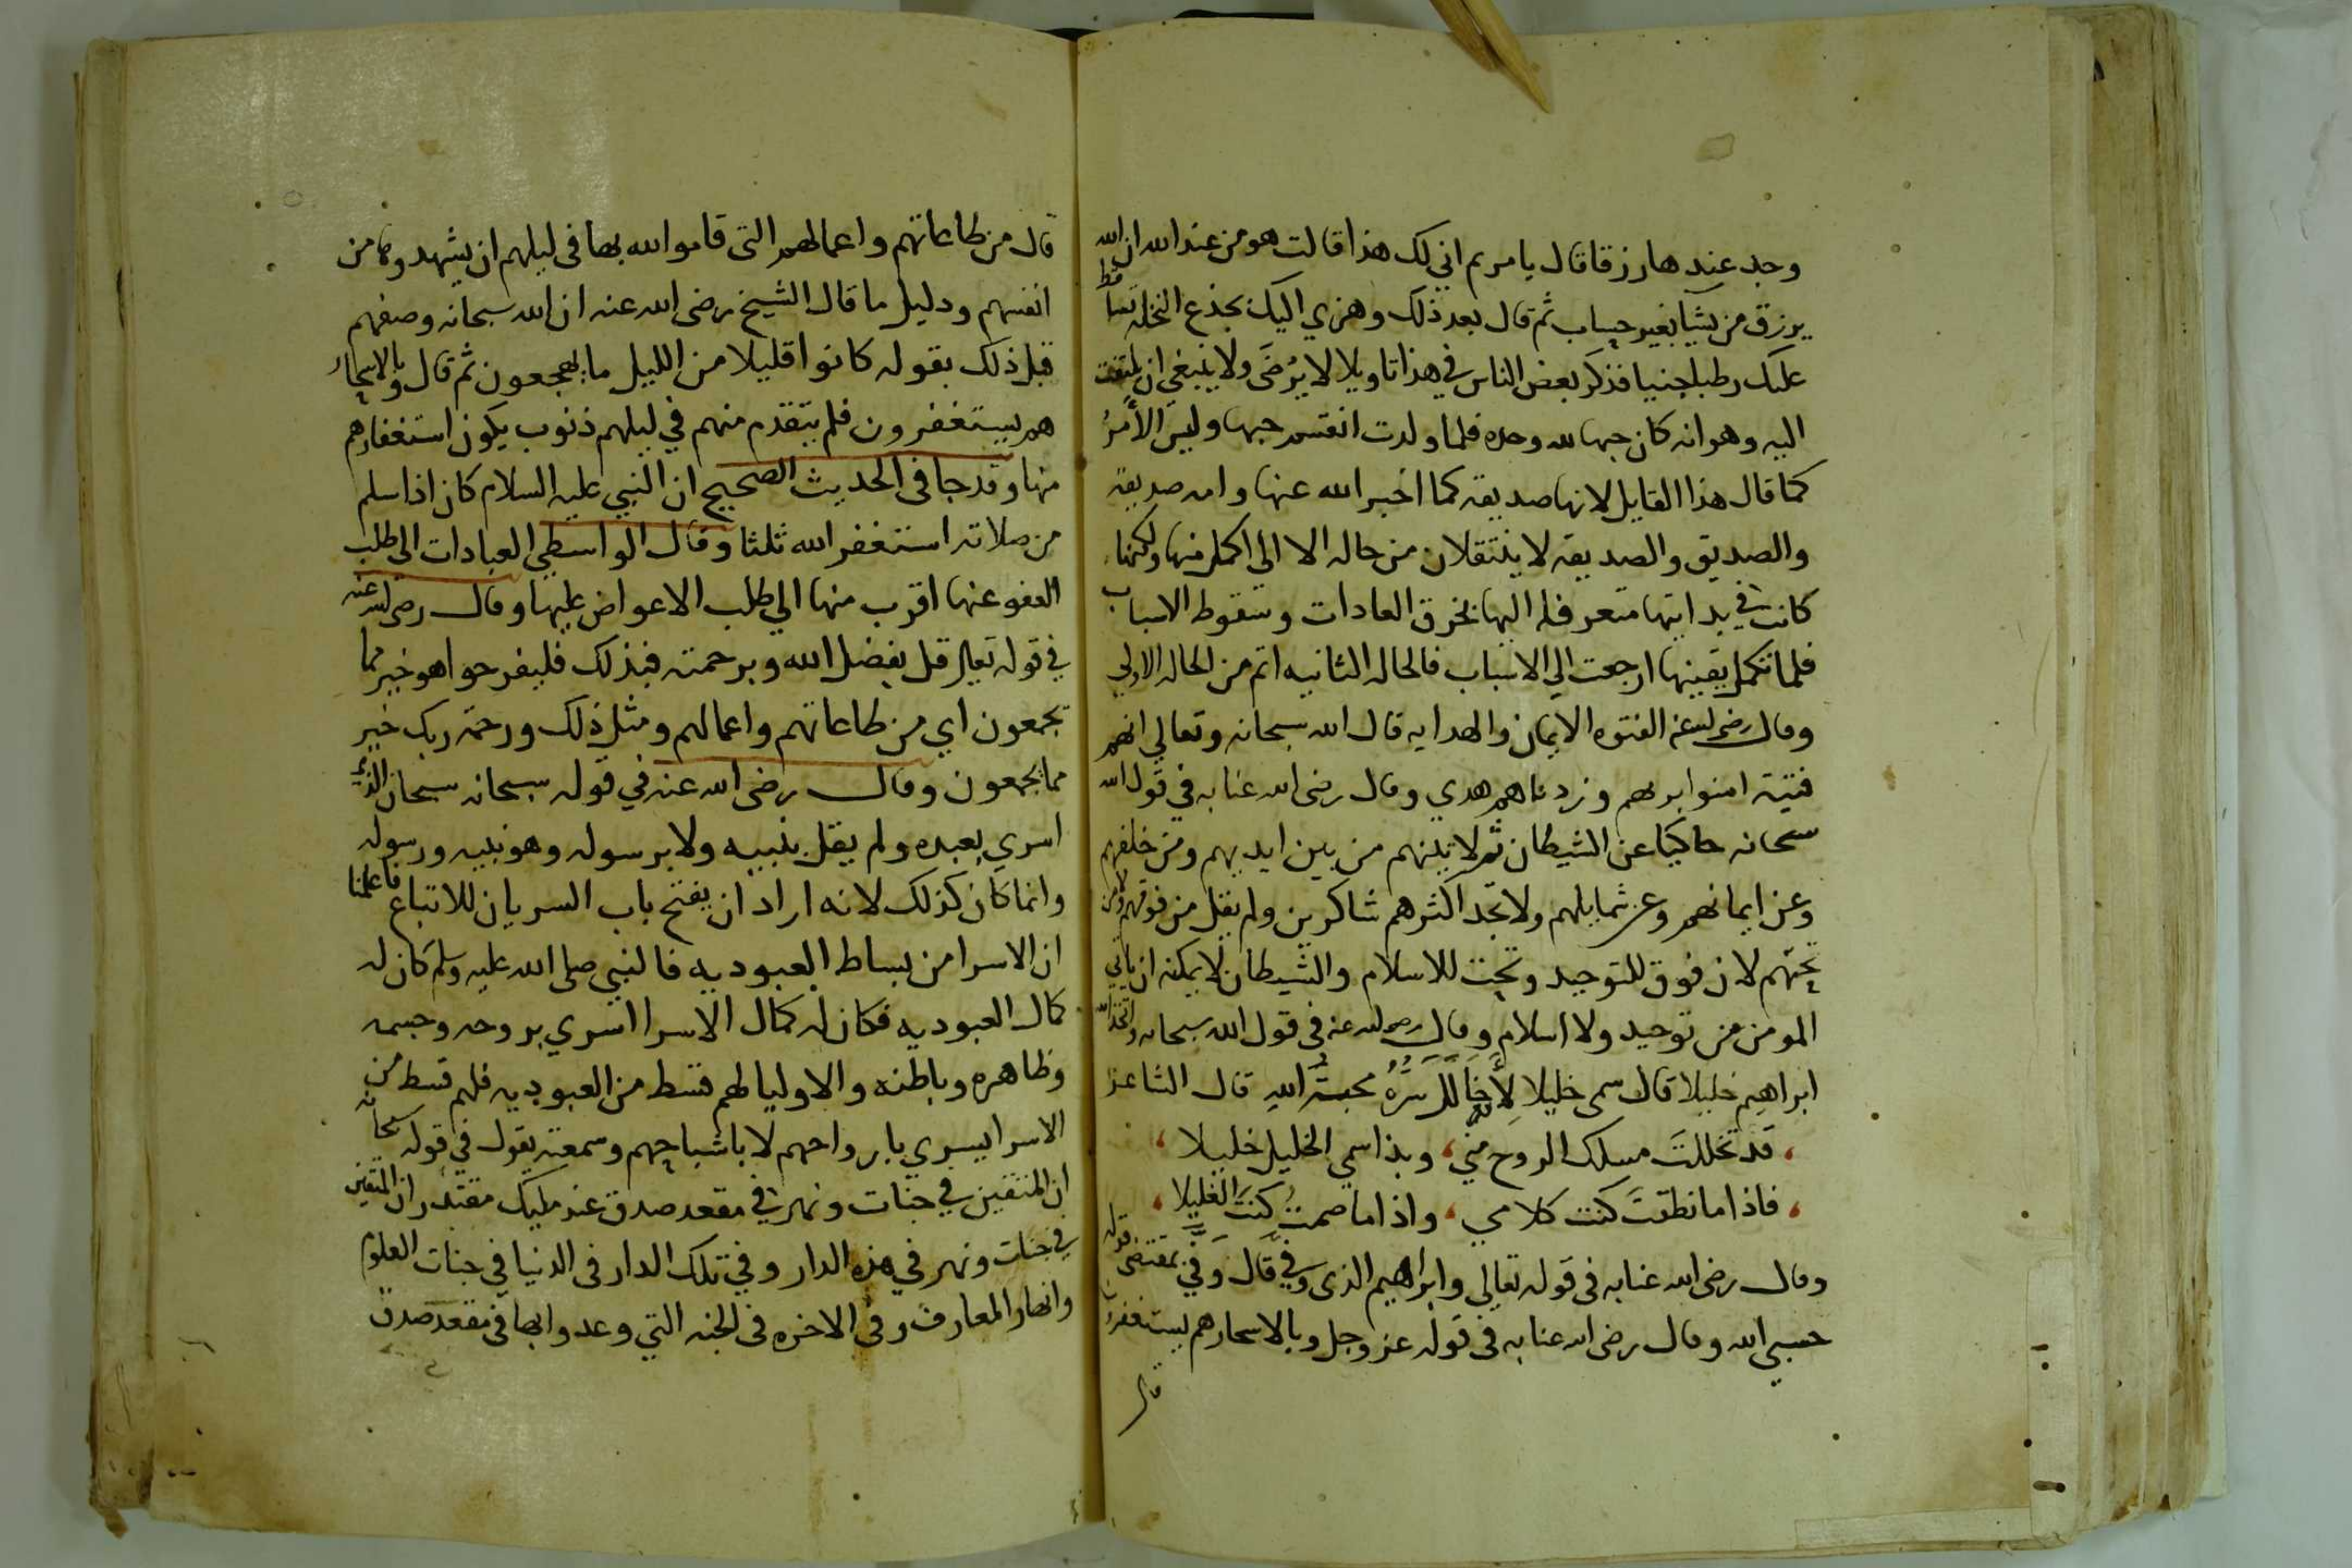 وجد عندها رزقا قال يا مريم اني لك هذا قالت هو من عند الله ان الله
يرزق من يشا بغير حساب ثم قال بعد ذلك وهزي اليك بجذع النخله تساقط
عليك رطبا جنيا فذكر بعض الناس في هذا تاويلا لا يرضى ولا ينبغي ان يلتفت
اليه وهو انه كان حبها لله وحده فلما ولدت انقسم حبها وليس الأمر
كما قال هذا القايل لانها صديقه كما اخبر الله عنها وامه صديقة
والصديق والصديقه لا ينتقلان من حاله الا الى اكمل منها ولكنها
كانت في بدايتها متعرفا اليها بخرق العادات وسقوط الاسباب
فلما تكمل يقينها ارجعت الي الاسباب فالحاله الثانيه اتم من الحاله الاولي
وقال رضي الله عنه الفتوه الايمان والهدايه قال الله سبحانه وتعالي انهم
فتية امنوا بربهم وزدناهم هدي وقال رضي الله عنا به في قول الله
سبحانه حاكيا عن الشيطان ثم لاتينهم من بين ايديهم ومن خلفهم
وعن ايمانهم وعن شمايلهم ولا تجد اكثرهم شاكرين ولم يقل من فوقهم ولا من
تحتهم لان فوق للتوحيد وتحت للاسلام والشيطان لا يمكنه ان ياتي
المومن من توحيد ولا اسلام وقال رضي الله عنه في قول الله سبحانه واتخذ الله
ابراهيم خليلا قال سمى خليلا لأنه خالل سره محبة الله قال الشاعر
قد تخللت مسلك الروح مني، وبذا سمي الخليل خليلا
فاذا ما نطقت كنت كلامي، واذا ما صمت كنت الغليلا
وقال رضي الله عنا به في قوله تعالي وابراهيم الذي وفي قال وفي بمقتضى قوله
حسبي الله وقال رضي الله عنا به في قوله عز وجل وبالاسحار هم يستغفرون
قال
قال من طاعاتهم واعمالهم التى قاموا لله بها فى ليلهم ان يشهدوها من
انفسهم ودليل ما قال الشيخ رضى الله عنه ان الله سبحانه وصفهم
قبل ذلك بقوله كانوا قليلا من الليل ما يهجعون ثم قال وبالاسحار
هم يستغفرون فلم يتقدم منهم في ليلهم ذنوب يكون استغفارهم
منها وقد جا فى الحديث الصحيح ان النبي عليه السلام كان اذا سلم
من صلاته استغفر الله ثلثا وقال الواسطي العبادات الى طلب
العفو عنها اقرب منها الي طلب الاعواض عليها وقال رضى الله عنه
في قوله تعالى قل بفضل الله وبرحمته فبذلك فليفرحوا هو خير مما
يجمعون اي من طاعاتهم واعمالهم ومثل ذلك ورحمة ربك خير
مما يجمعون وقال رضى الله عنه في قوله سبحانه سبحان الذي
اسري بعبده ولم يقل بنبيه ولا برسوله وهو نبيه ورسوله
وانما كان كذلك لانه اراد ان يفتح باب السريان للاتباع فاعلمنا
ان الاسرا من بساط العبوديه فالنبي صلى الله عليه وسلم كان له
كمال العبوديه فكان له كمال الاسرا اسري بروحه وجسمه
وظاهره وباطنه والاوليا لهم قسط من العبوديه فلهم قسط من
الاسرا يسري بارواحهم لا باشباحهم وسمعته يقول في قوله سبحانه
ان المتقين في جنات ونهر في مقعد صدق عند مليك مقتدر ان المتقين
في جنات ونهر في هذه الدار وفي تلك الدار فى الدنيا في جنات العلوم
وانهار المعارف وفى الاخره فى الجنه التي وعدوا بها في مقعد صدق